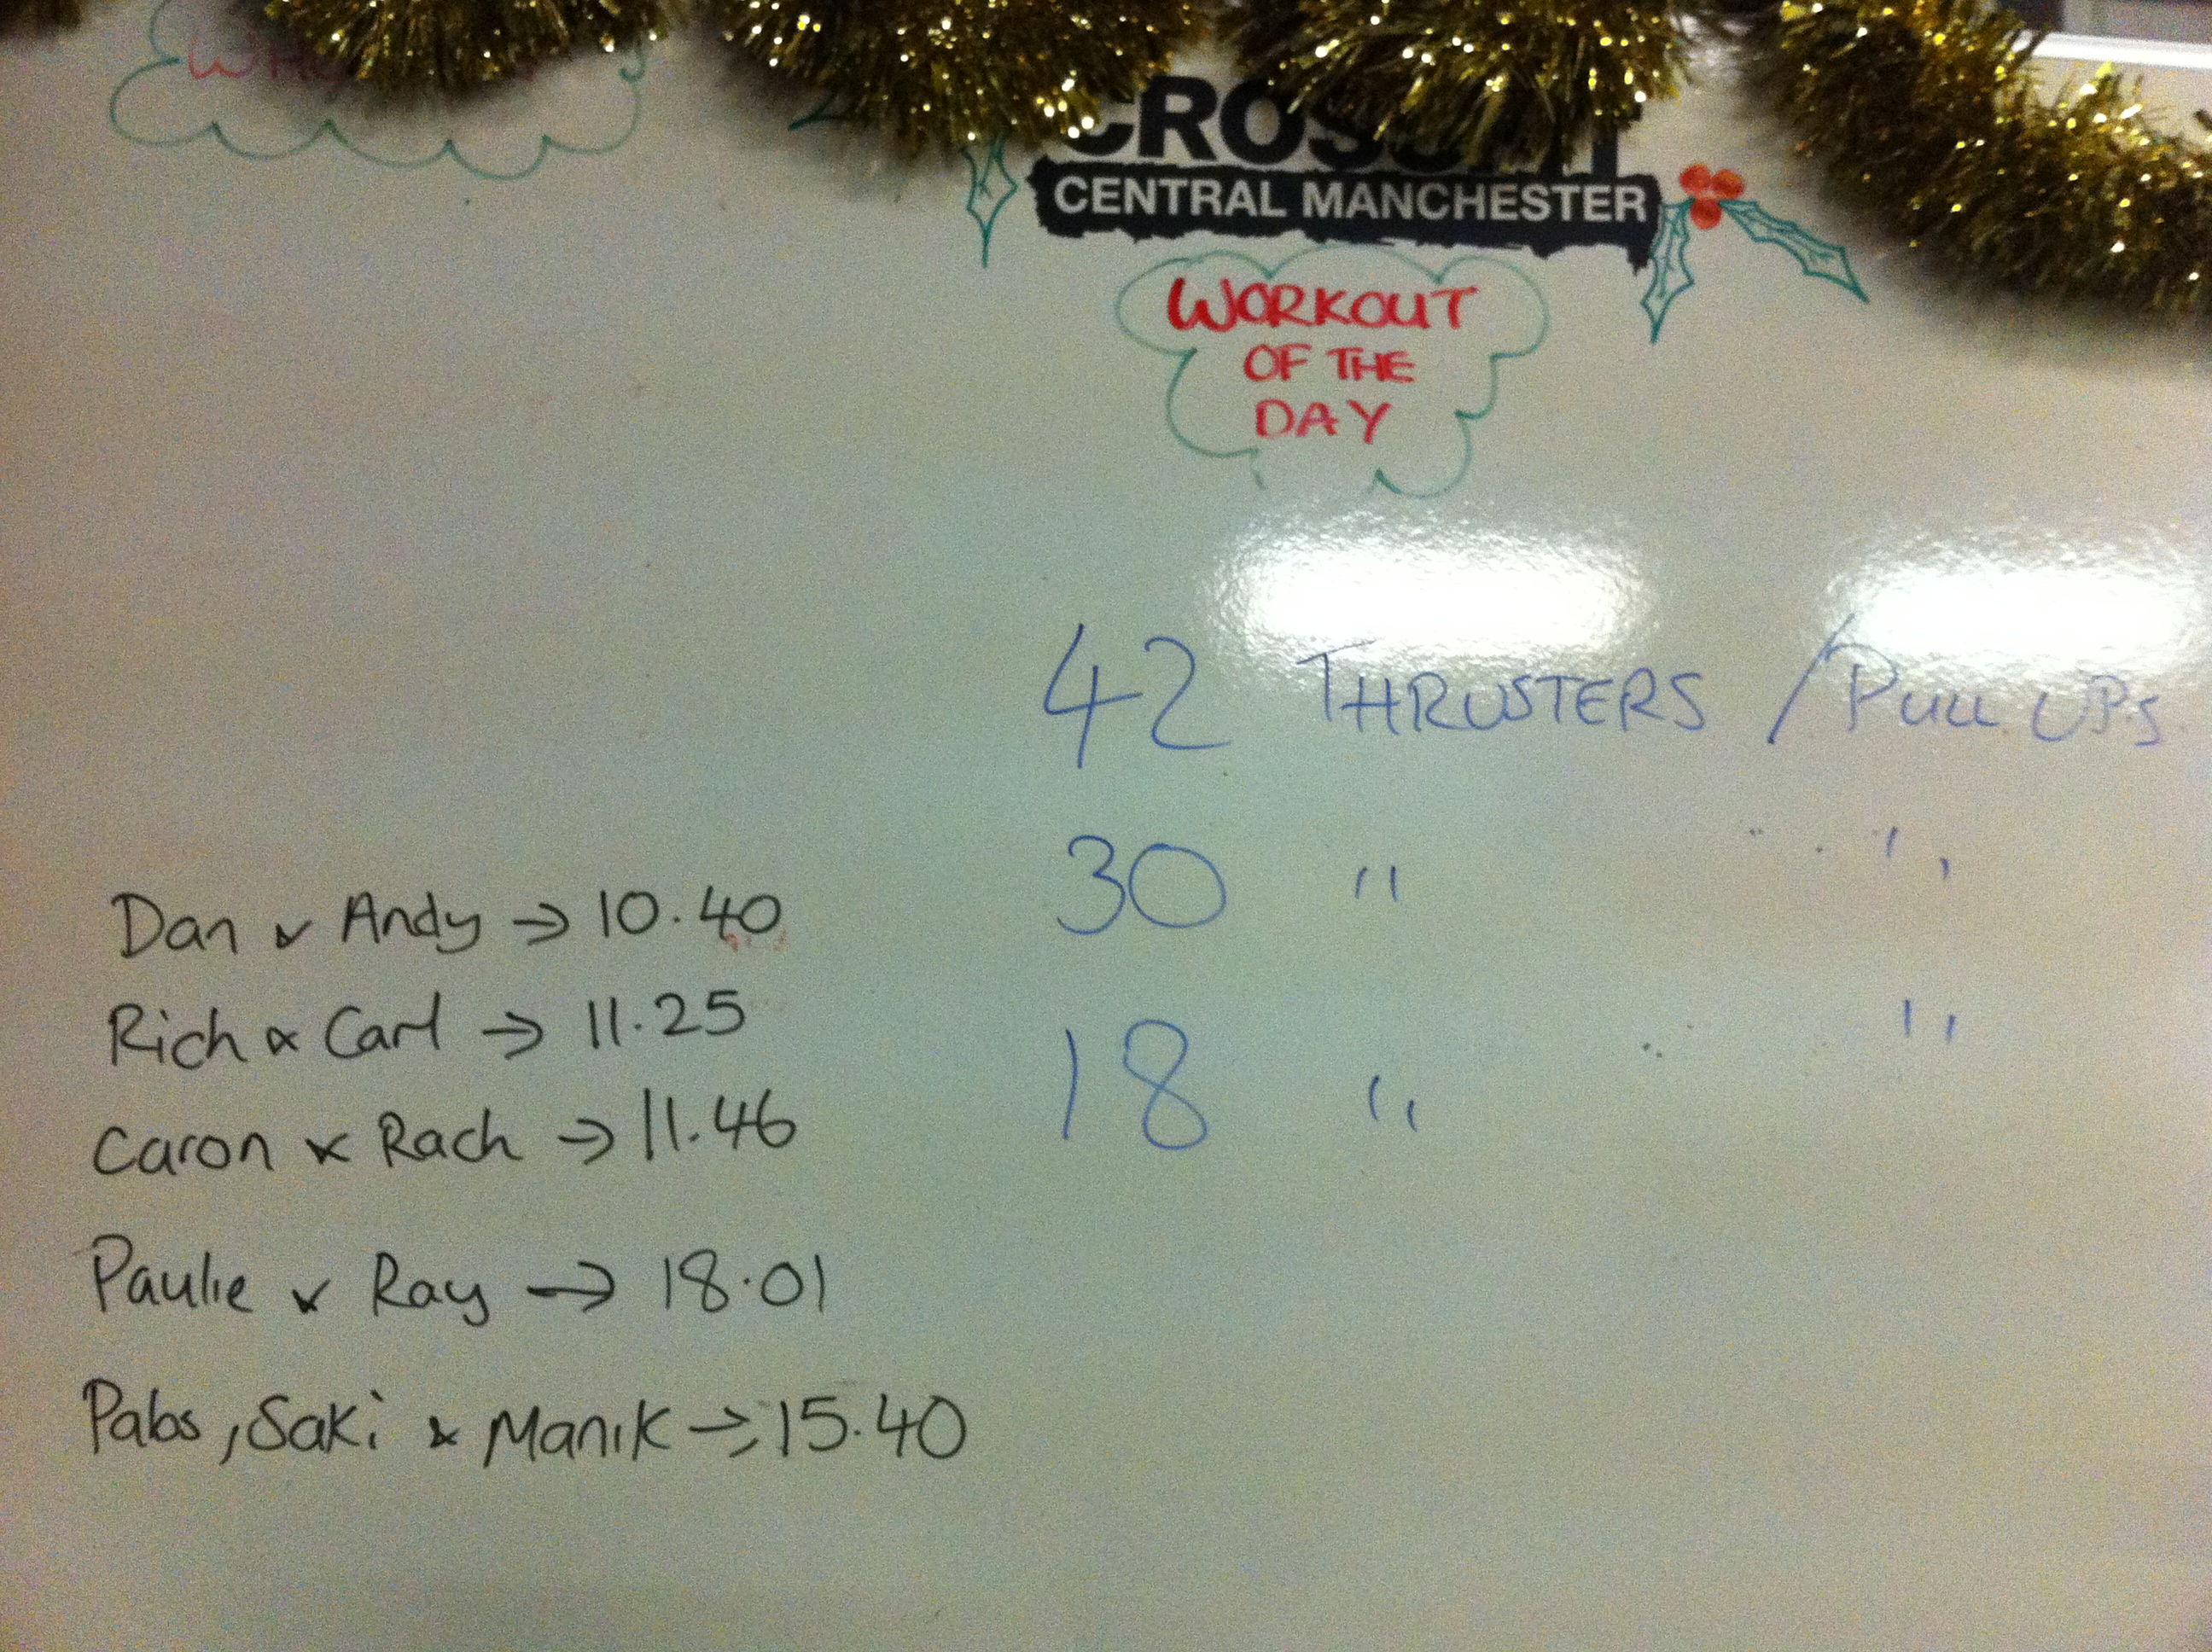 CROSSFIT
CENTRAL MANCHESTER
WORKOUT
OF THE
DAY
42 THRUSTERS / PULL UPS
30 " "
18 " "
Dan & Andy → 10.40
Rich & Carl → 11.25
Caron & Rach → 11.46
Paulie & Ray → 18.01
Pabs, Saki & Manik → 15.40